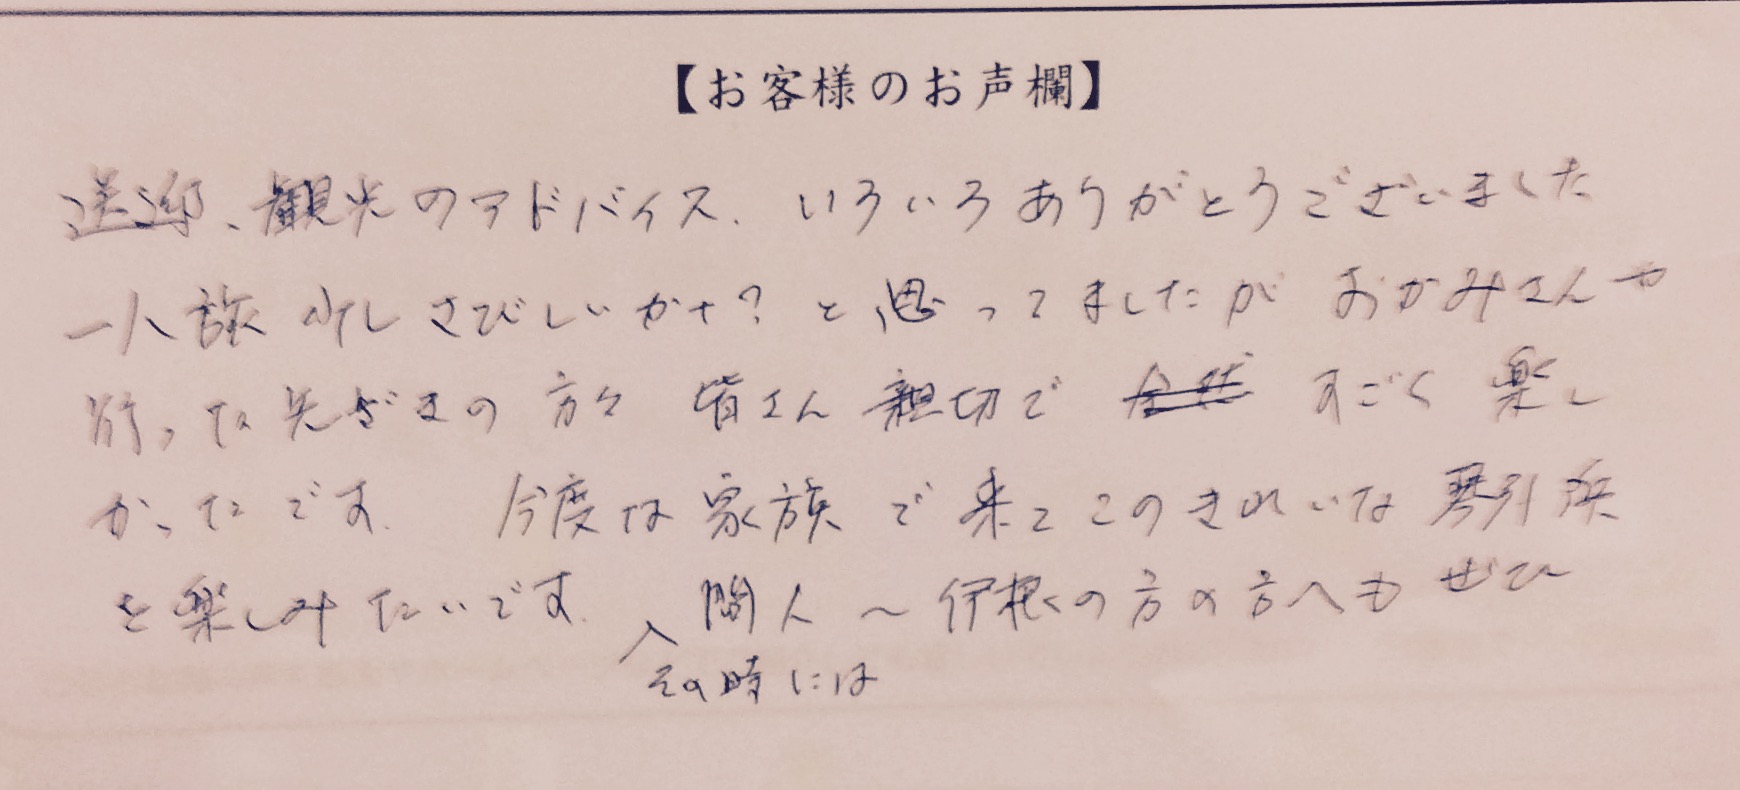 【お客様のお声欄】
送迎、観光のアドバイス、いろいろありがとうございました
一人旅 少しさびしいかナ？と思ってましたが おかみさんや
行った先ざきの 方々 皆さん 親切で すごく 楽し
かったです。 今度は家族で来てこのきれいな琴引浜
を楽しみたいです。 間人～伊根の方の方へも ぜひ
その時には